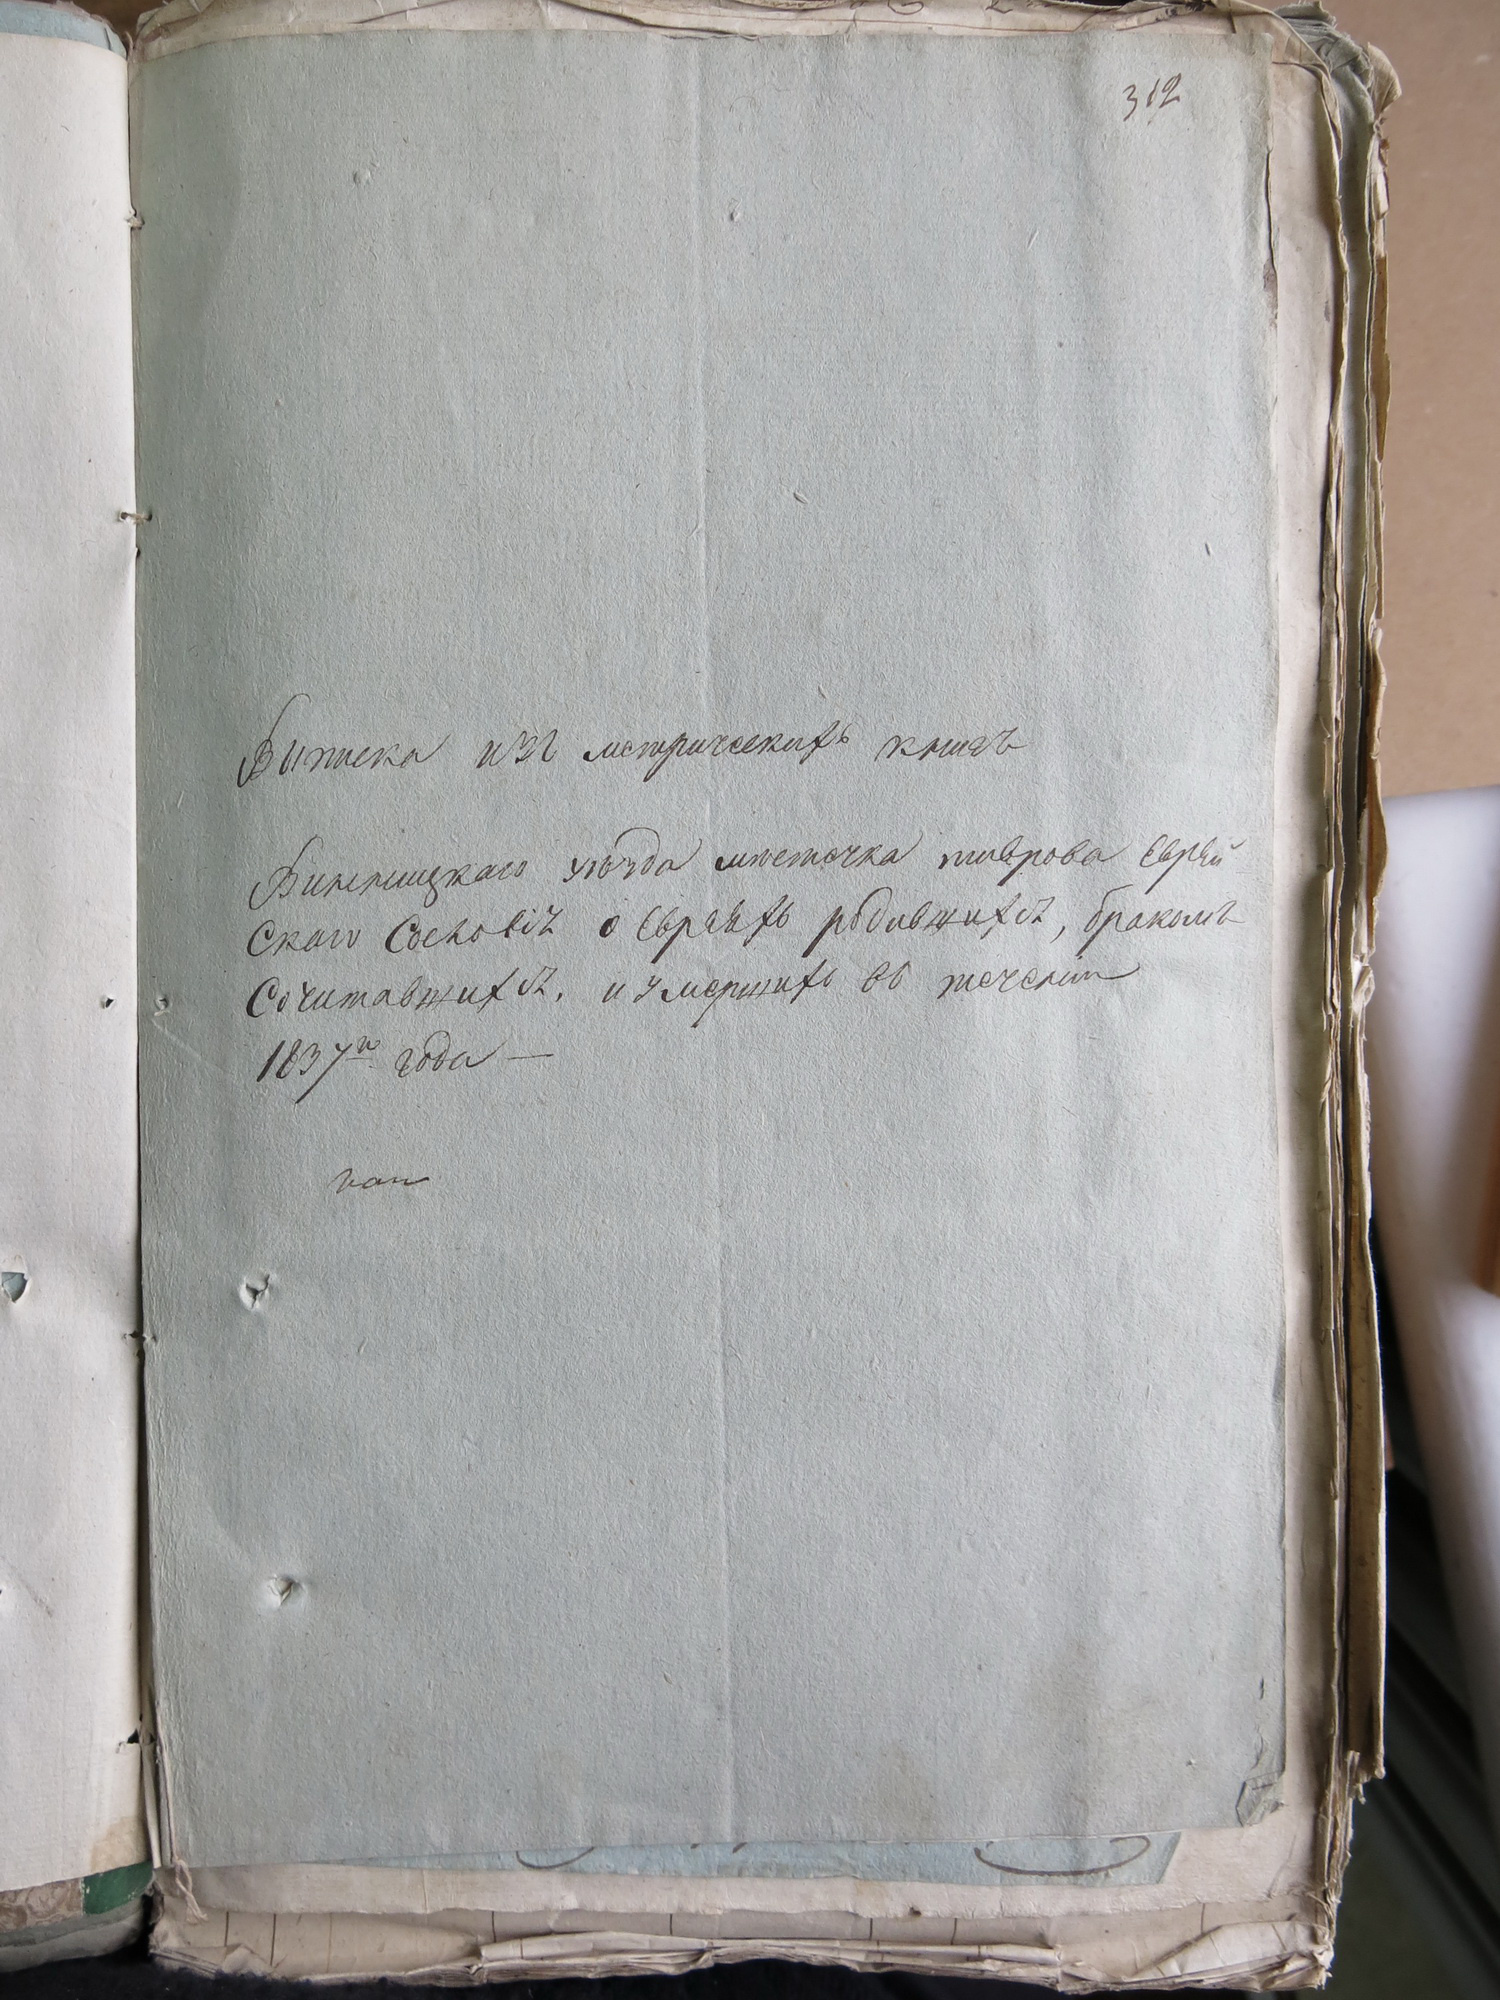 312
Выписка изъ метрическихъ книгъ
Винницкаго уѣзда местечка тиврова Еврей
Скаго Сословія о Евреяхъ родившихся, бракомъ
Сочитавшихся, и умершихъ въ теченіи
1837го года —